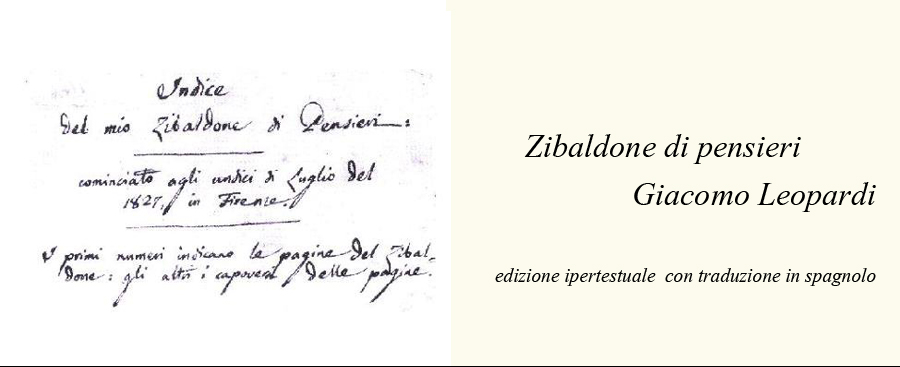 Indice
del mio Zibaldone di Pensieri:
cominciato agli undici di Luglio del
1827, in Firenze.
I primi numeri indicano le pagine del Zibal-
done: gli altri i capoversi delle pagine.
Zibaldone di pensieri
Giacomo Leopardi
edizione ipertestuale con traduzione in spagnolo